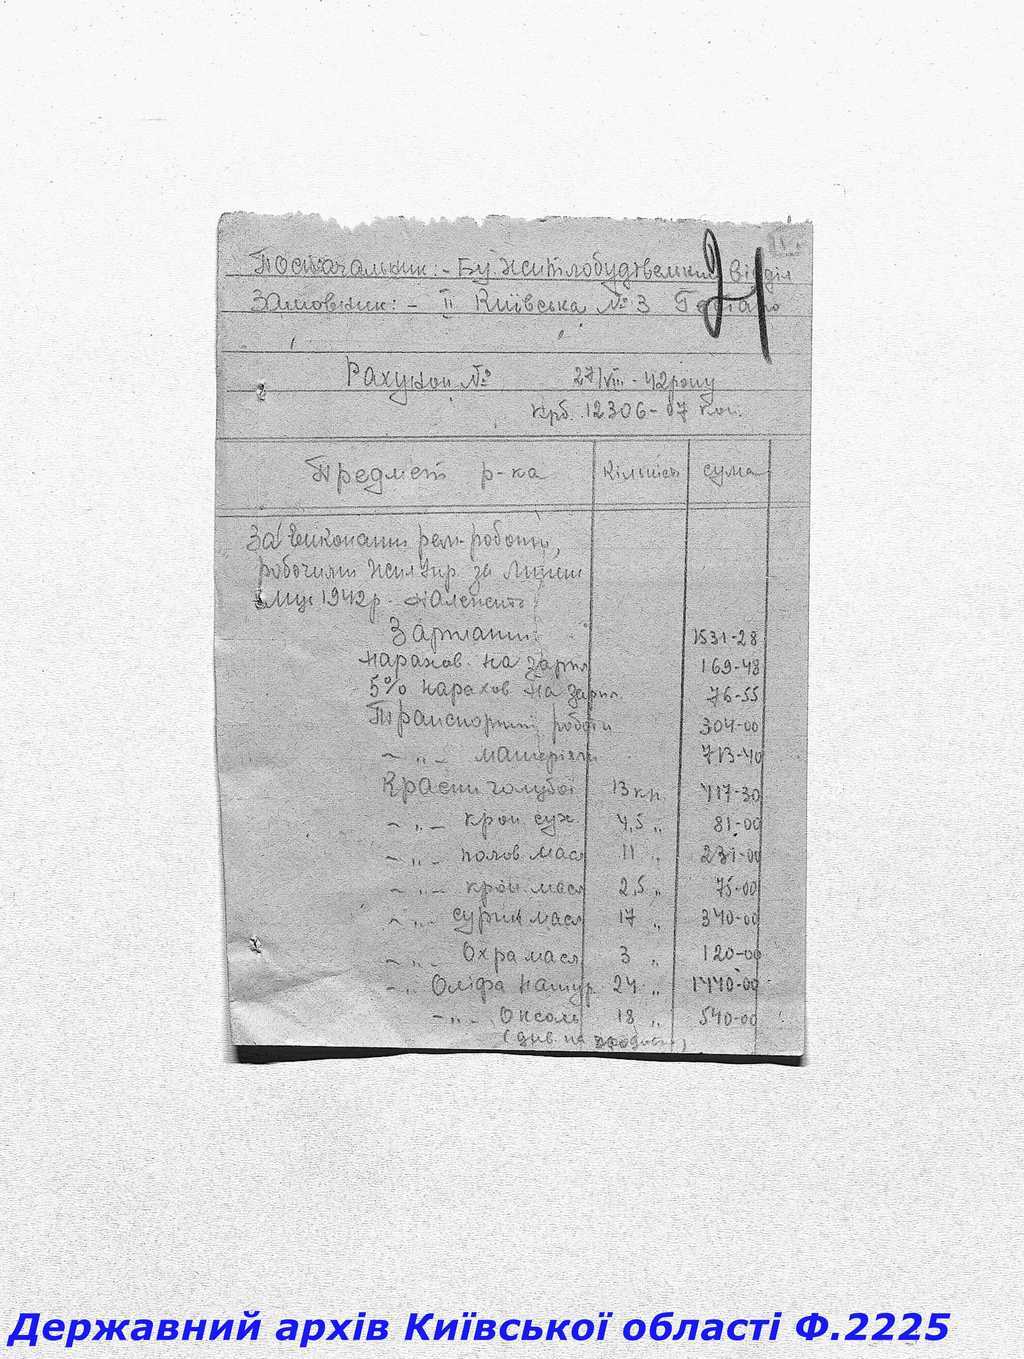 Постачальник: - Бу. Житлобудівельний Відділ
Замовник: - II Київська № 3
21
Рахунок № 27/VIII - 42 року
Крб. 12306-07 коп.
Предмет р-ка Кількість сума
За виконання рем. роботи,
робочими Жил Упр. за Липень
м-ць 1942 р. належить
Зарплати: 1531-28
нарахов. на зарпл 169-48
5% нарахов на зарпл. 76-55
Транспортні роботи 304-00
~ " - матеріяли 713-40
Краски голубої 13 кг 417-30
~ " - крон сух. 4,5 " 81-00
~ " - полов масл 11 " 231-00
~ " - крон масл 2,5 " 75-00
~ " - сурик масл 17 " 340-00
~ " - Охра масл 3 " 120-00
~ " - Оліфа натур. 24 " 1440-00
~ " - Оксоль 18 " 540-00
(див. на
Державний архів Київської області Ф.2225